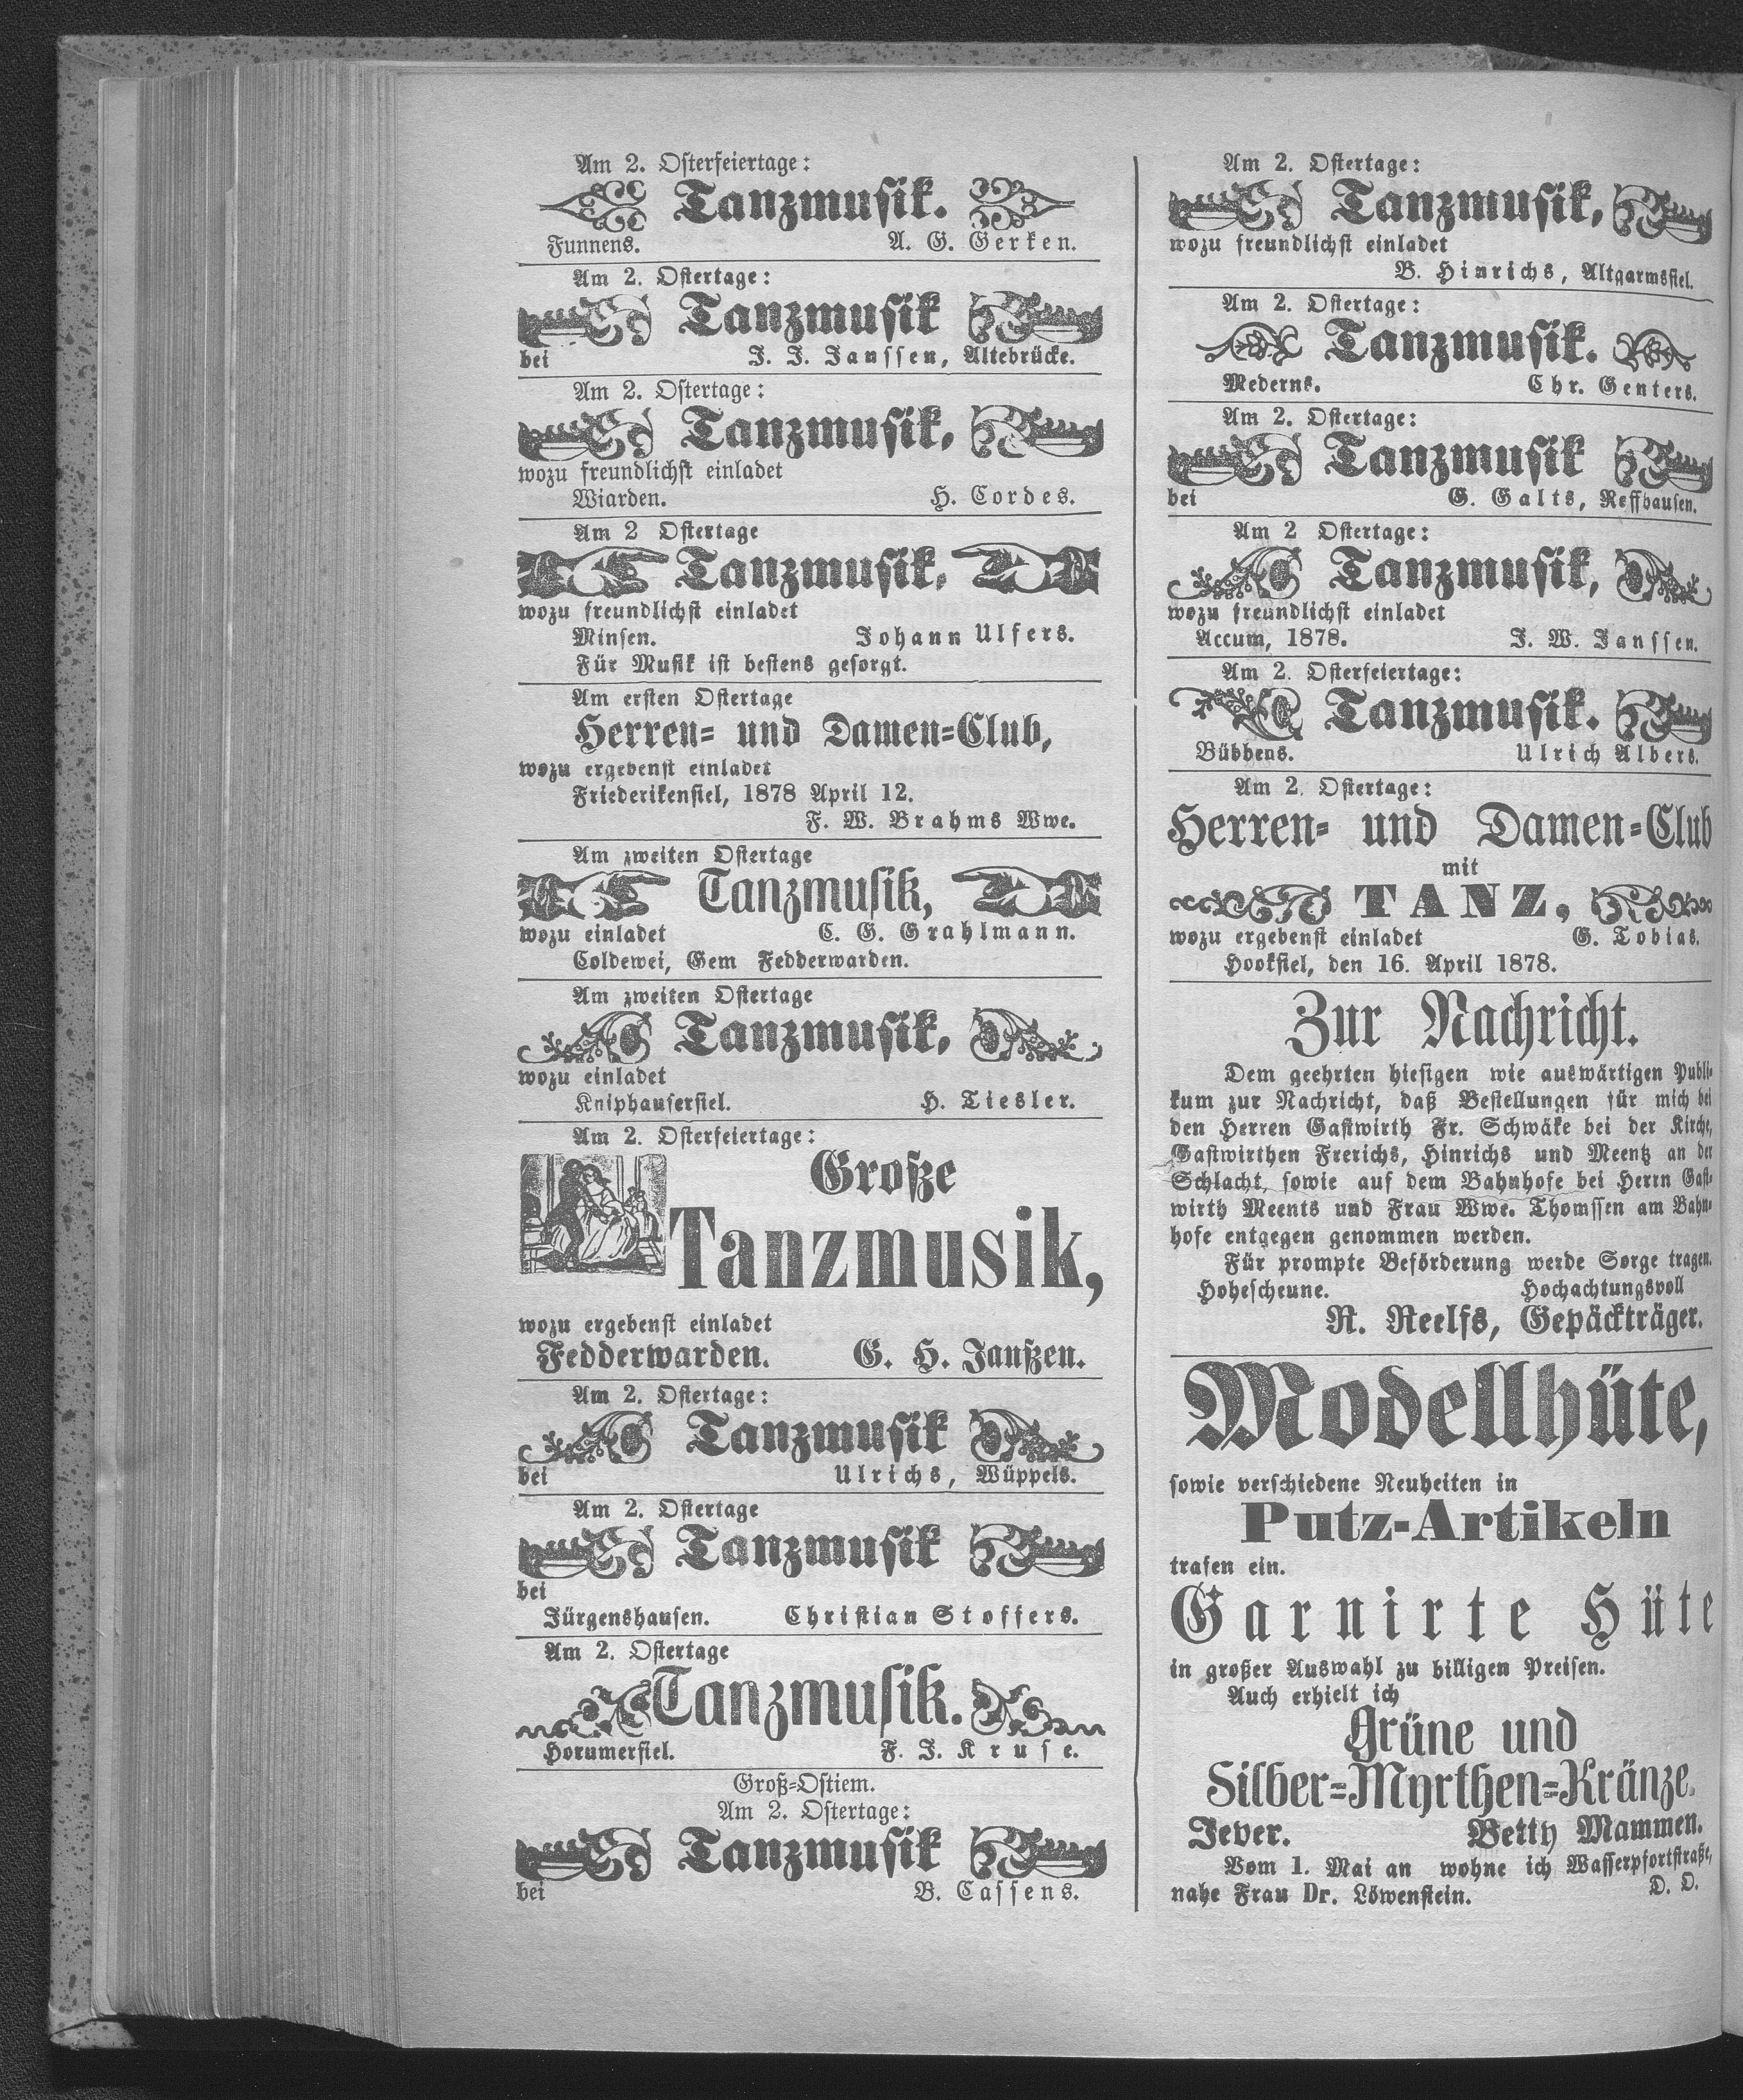 Am 2. Osterfeiertage:
Tanzmusik.
Funnens. A. G. Gerken.
Am 2. Ostertage:
Tanzmusik
bei J. J. Janssen, Altebrücke.
Am 2. Ostertage:
Tanzmusik,
wozu freundlichst einladet
Wiarden. H. Cordes.
Am 2 Ostertage
Tanzmusik,
wozu freundlichst einladet
Minsen. Johann Ulfers.
Für Musik ist bestens gesorgt.
Am ersten Ostertage
Herren- und Damen-Club,
wozu ergebenst einladet
Friederikensiel, 1878 April 12.
F. W. Brahms Wwe.
Am zweiten Ostertage
Tanzmusik,
wozu einladet C. G. Grahlmann.
Coldewei, Gem Fedderwarden.
Am zweiten Ostertage
Tanzmusik,
wozu einladet
Kniphausersiel. H. Tiesler.
Am 2. Osterfeiertage:
Große
Tanzmusik,
wozu ergebenst einladet
Fedderwarden. G. H. Janßen.
Am 2. Ostertage:
Tanzmusik
bei Ulrichs, Wüppels.
Am 2. Ostertage
Tanzmusik
bei
Jürgenshausen. Christian Stoffers.
Am 2. Ostertage
Tanzmusik.
Horumersiel. F. J. Kruse.
Groß-Ostiem.
Am 2. Ostertage:
Tanzmusik
bei B. Cassens.
Am 2. Ostertage:
Tanzmusik,
wozu freundlichst einladet
B. Hinrichs, Altgarmssiel.
Am 2. Ostertage:
Tanzmusik.
Mederns. Chr. Genters.
Am 2. Ostertage:
Tanzmusik
bei G. Galts, Reffhausen.
Am 2 Ostertage:
Tanzmusik,
wozu freundlichst einladet
Accum, 1878. J. W. Janssen.
Am 2. Osterfeiertage:
Tanzmusik.
Bübbens. Ulrich Albers.
Am 2. Ostertage:
Herren- und Damen-Club
mit
TANZ,
wozu ergebenst einladet G. Tobias.
Hooksiel, den 16. April 1878.
Zur Nachricht.
Dem geehrten hiesigen wie auswärtigen Publi-
kum zur Nachricht, daß Bestellungen für mich bei
den Herren Gastwirth Fr. Schwäke bei der Kirche,
Gastwirthen Frerichs, Hinrichs und Meentz an der
Schlacht, sowie auf dem Bahnhofe bei Herrn Gast-
wirth Meents und Frau Wwe. Thomssen am Bahn-
hofe entgegen genommen werden.
Für prompte Beförderung werde Sorge tragen.
Hohescheune. Hochachtungsvoll
R. Reelfs, Gepäckträger.
Modellhüte,
sowie verschiedene Neuheiten in
Putz-Artikeln
trafen ein.
Garnirte Hüte
in großer Auswahl zu billigen Preisen.
Auch erhielt ich
Grüne und
Silber-Myrthen-Kränze.
Jever. Betty Mammen.
Vom 1. Mai an wohne ich Wasserpfortstraße,
nahe Frau Dr. Löwenstein. D. O.